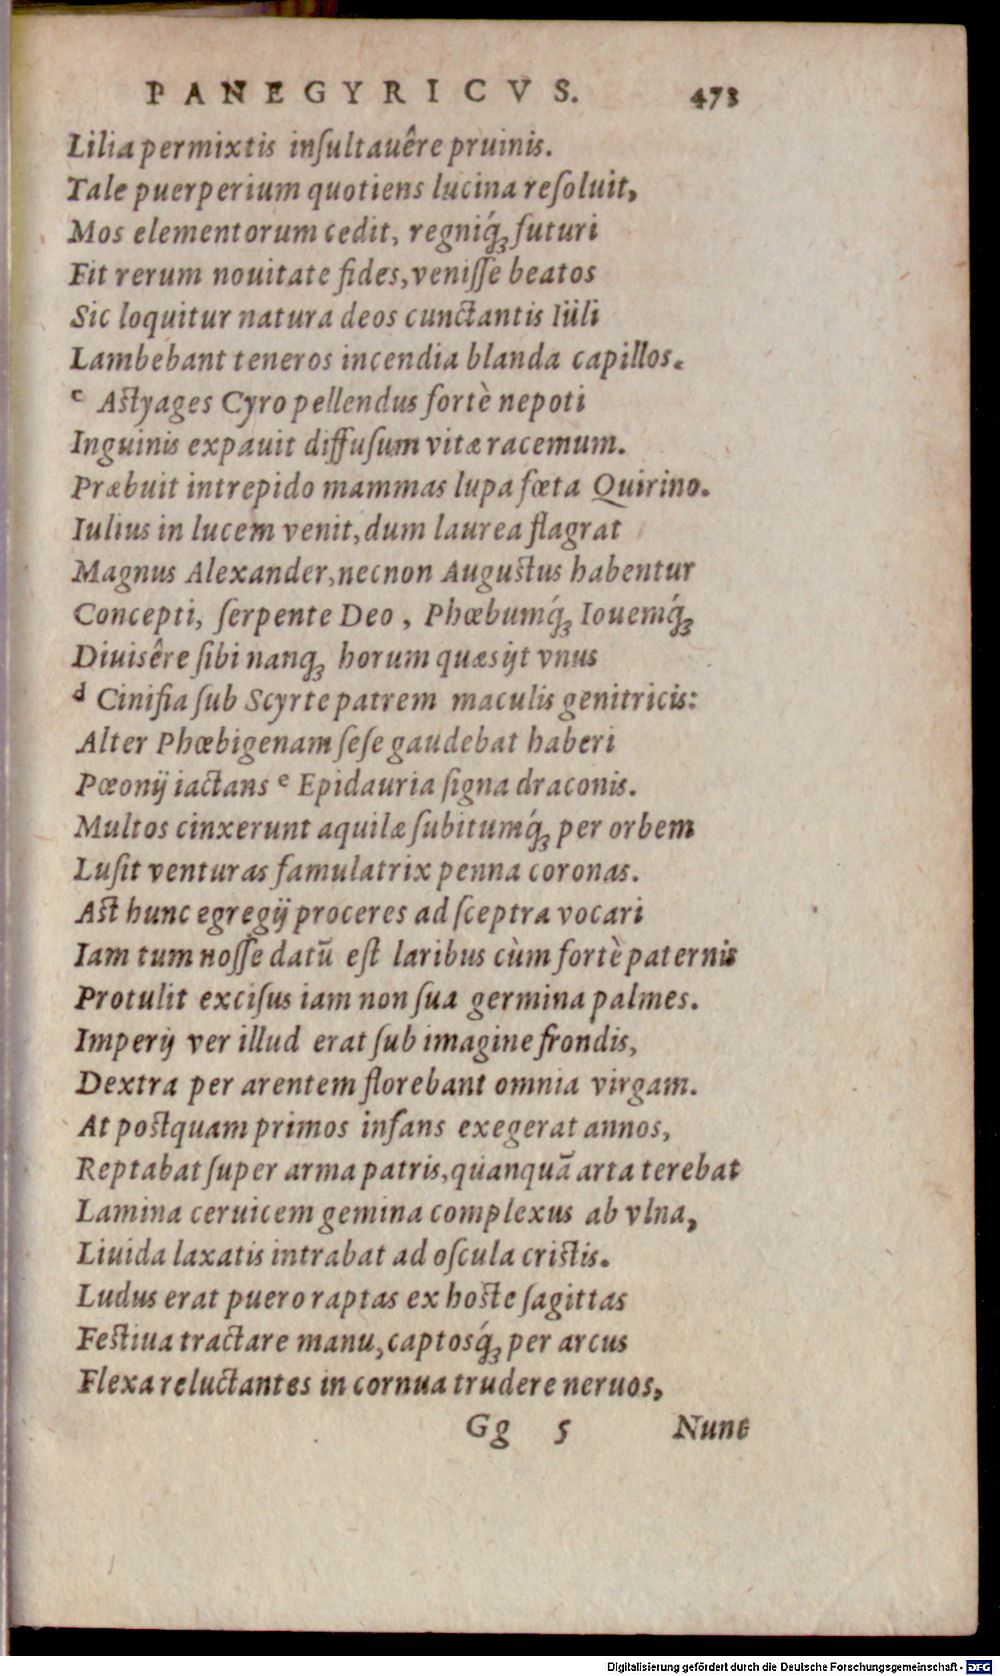 PANEGYRICVS. 473
Lilia permixtis inſultauêre pruinis.
Tale puerperium quotiens lucina reſoluit,
Mos elementorum cedit, regniq́ꝫ futuri
Fit rerum nouitate fides, veniſſe beatos
Sic loquitur natura deos cunctantis Iüli
Lambebant teneros incendia blanda capillos.
c Aſtyages Cyro pellendus fortè nepoti
Inguinis expauit diffuſum vitæ racemum.
Præbuit intrepido mammas lupa fœta Quirino.
Iulius in lucem venit, dum laurea flagrat
Magnus Alexander, necnon Auguſtus habentur
Concepti, ſerpente Deo , Phœbumq́ꝫ Iouemq́ꝫ
Diuisêre ſibi nanqꝫ horum quæsijt vnus
d Cinifia ſub Scyrte patrem maculis genitricis:
Alter Phœbigenam ſeſe gaudebat haberi
Pœonij iactans e Epidauria ſigna draconis.
Multos cinxerunt aquilæ ſubitumq́ꝫ per orbem
Luſit venturas famulatrix penna coronas.
Aſt hunc egregij proceres ad ſceptra vocari
Iam tum noſſe datū eſt laribus cùm fortè paternis
Protulit exciſus iam non ſua germina palmes.
Imperij ver illud erat ſub imagine frondis,
Dextra per arentem florebant omnia virgam.
At poſtquam primos infans exegerat annos,
Reptabat ſuper arma patris, quanquā arta terebat
Lamina ceruicem gemina complexus ab vlna,
Liuida laxatis intrabat ad oſcula criſtis.
Ludus erat puero raptas ex hoſte ſagittas
Feſtiua tractare manu, captosq́ꝫ per arcus
Flexa reluctantes in cornua trudere neruos,
Gg 5 Nunc
Digitalisierung gefördert durch die Deutsche Forschungsgemeinschaft - DFG